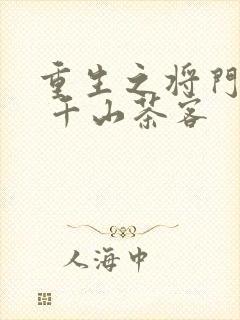 重生之将門
千山茶客
人海中